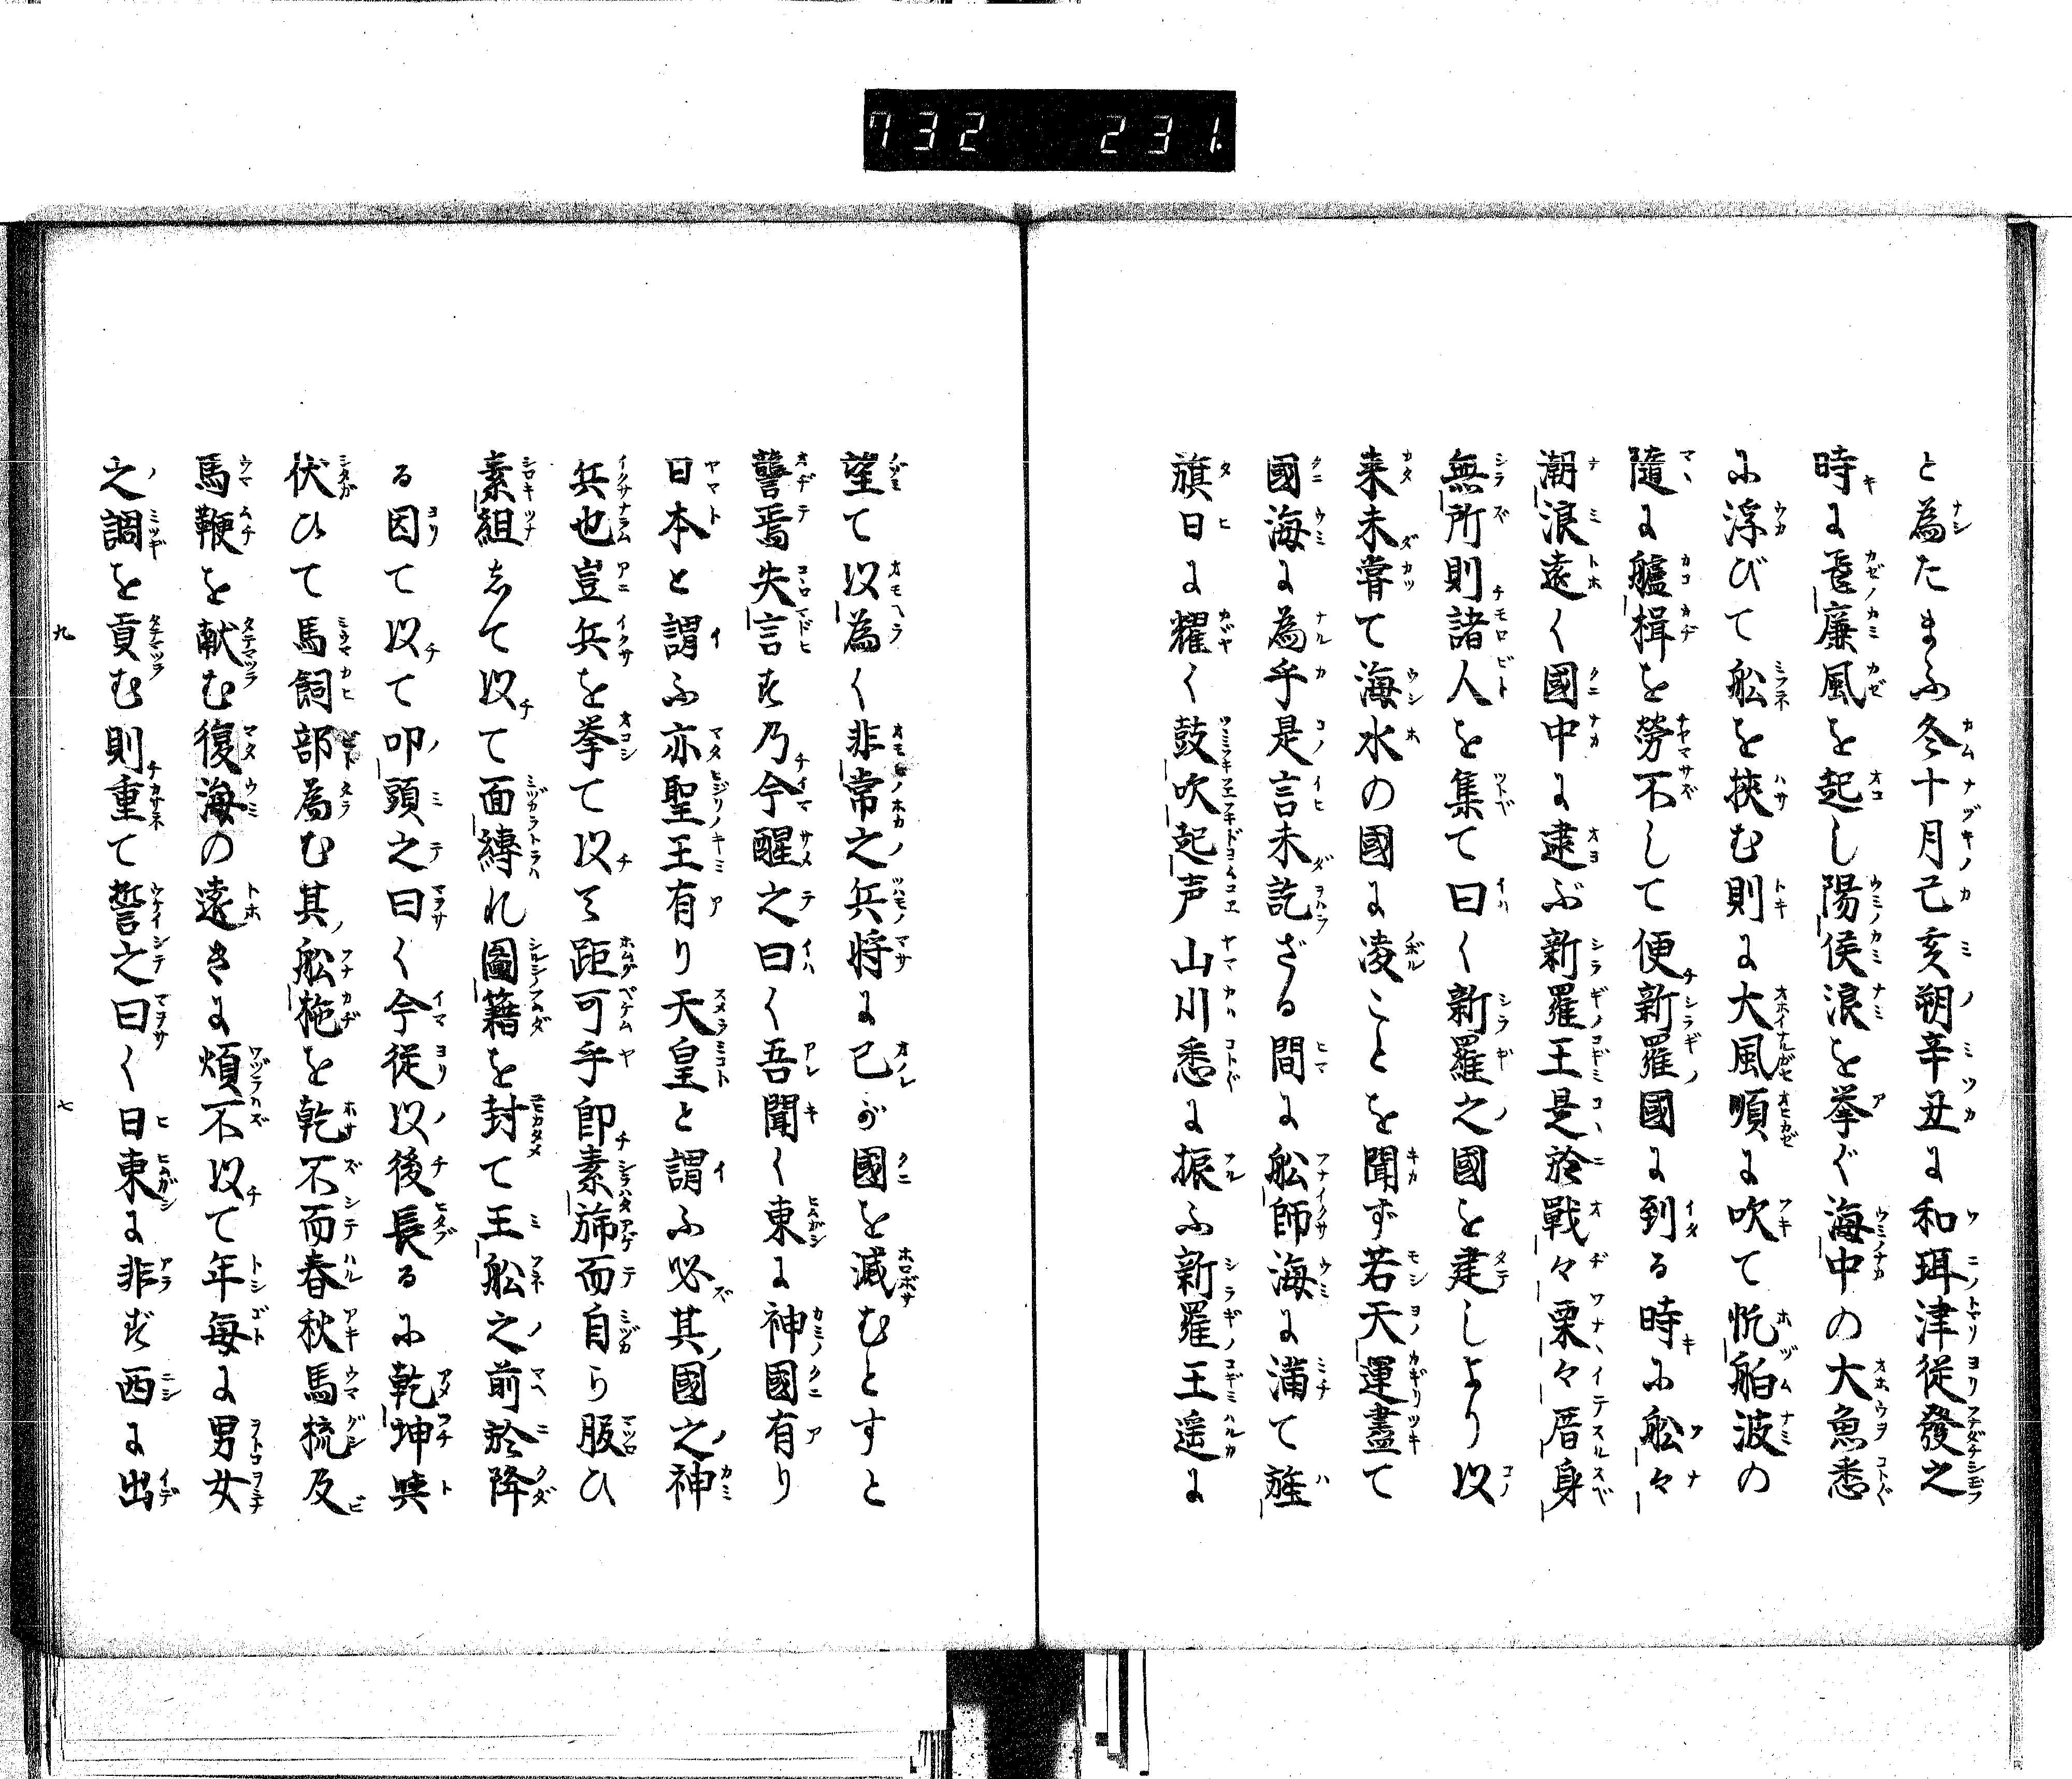 732 231.
と為たまふ冬十月己亥朔辛丑に和珥津従發之
時に蜚廉風を起し陽侯浪を挙ぐ海中の大魚悉
に浮びて舩を挾む則に大風順に吹て帆舶波の
隨に艫楫を勞不して便新羅國に到る時に舩々
潮浪遠く國中に逮ぶ新羅王是於戰々栗々厝身
無所則諸人を集て曰く新羅之國を建しより以
来未嘗て海水の國に凌ことを聞ず若天運盡て
國海に為乎是言未訖ざる間に舩師海に満て旌
旗日に耀く鼓吹起声山川悉に振ふ新羅王遥に
望て以為く非常之兵将に己が國を滅むとすと
讋焉失言す乃今醒之曰く吾聞く東に神國有り
日本と謂ふ亦聖王有り天皇と謂ふ必其國之神
兵也豈兵を挙て以て距可乎即素旆而自ら服ひ
素組して以て面縛れ圖籍を封て王舩之前於降
る因て以て叩頭之曰く今従以後長るに乾坤與
伏ひて馬飼部為む其舩柂を乾不而春秋馬梳及
馬鞭を献む復海の遠きに煩不以て年毎に男女
之調を貢む則重て誓之曰く日東に非ず西に出
九
七